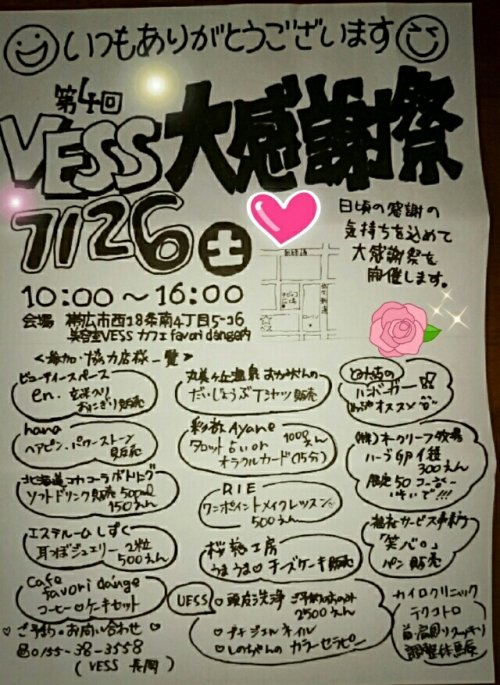 いつもありがとうございます
第4回
VESS 大感謝祭
7/26 土
日頃の感謝の
気持ちを込めて
大感謝祭を
開催します。
10:00～16:00
会場 帯広市西18条南4丁目5-16
美容室VESS カフェ favori dange内
<参加・協力店様一覧>
ビューティースペース
en. 玄米入り
おにぎり販売
hana
ヘアピン、パワーストーン
販売
北海道コカコーラボトリング
ソフトドリンク販売 500ml
150えん
エステルームしずく
耳つぼジュエリー 2粒
500えん
Cafe
favori dange
コーヒー♡ケーキセット
丸美ヶ丘温泉 おかみさんの
だいじょうぶTシャツ販売
彩紋 Ayane
タロット占い or 1000えん
オラクルカード (15分)
RIE
ワンポイントメイクレッスン
500えん
工房
うまうま♡チーズケーキ販売
VESS
♡頭皮洗浄 ご予約の方のみ
2500えん
♡プチジェルネイル
♡しのちゃんのカラーセラピー
ハンバーガー
オススメ
(株)オークリーフ牧場
300えん
限定50
福祉サービス事業所
「笑心。」
パン販売
カイロクリニック
テクノトロ
首・肩周りスッキリ
調整体験
♡ご予約・お問い合わせ♡
☎0155-38-3558
(VESS 長岡)